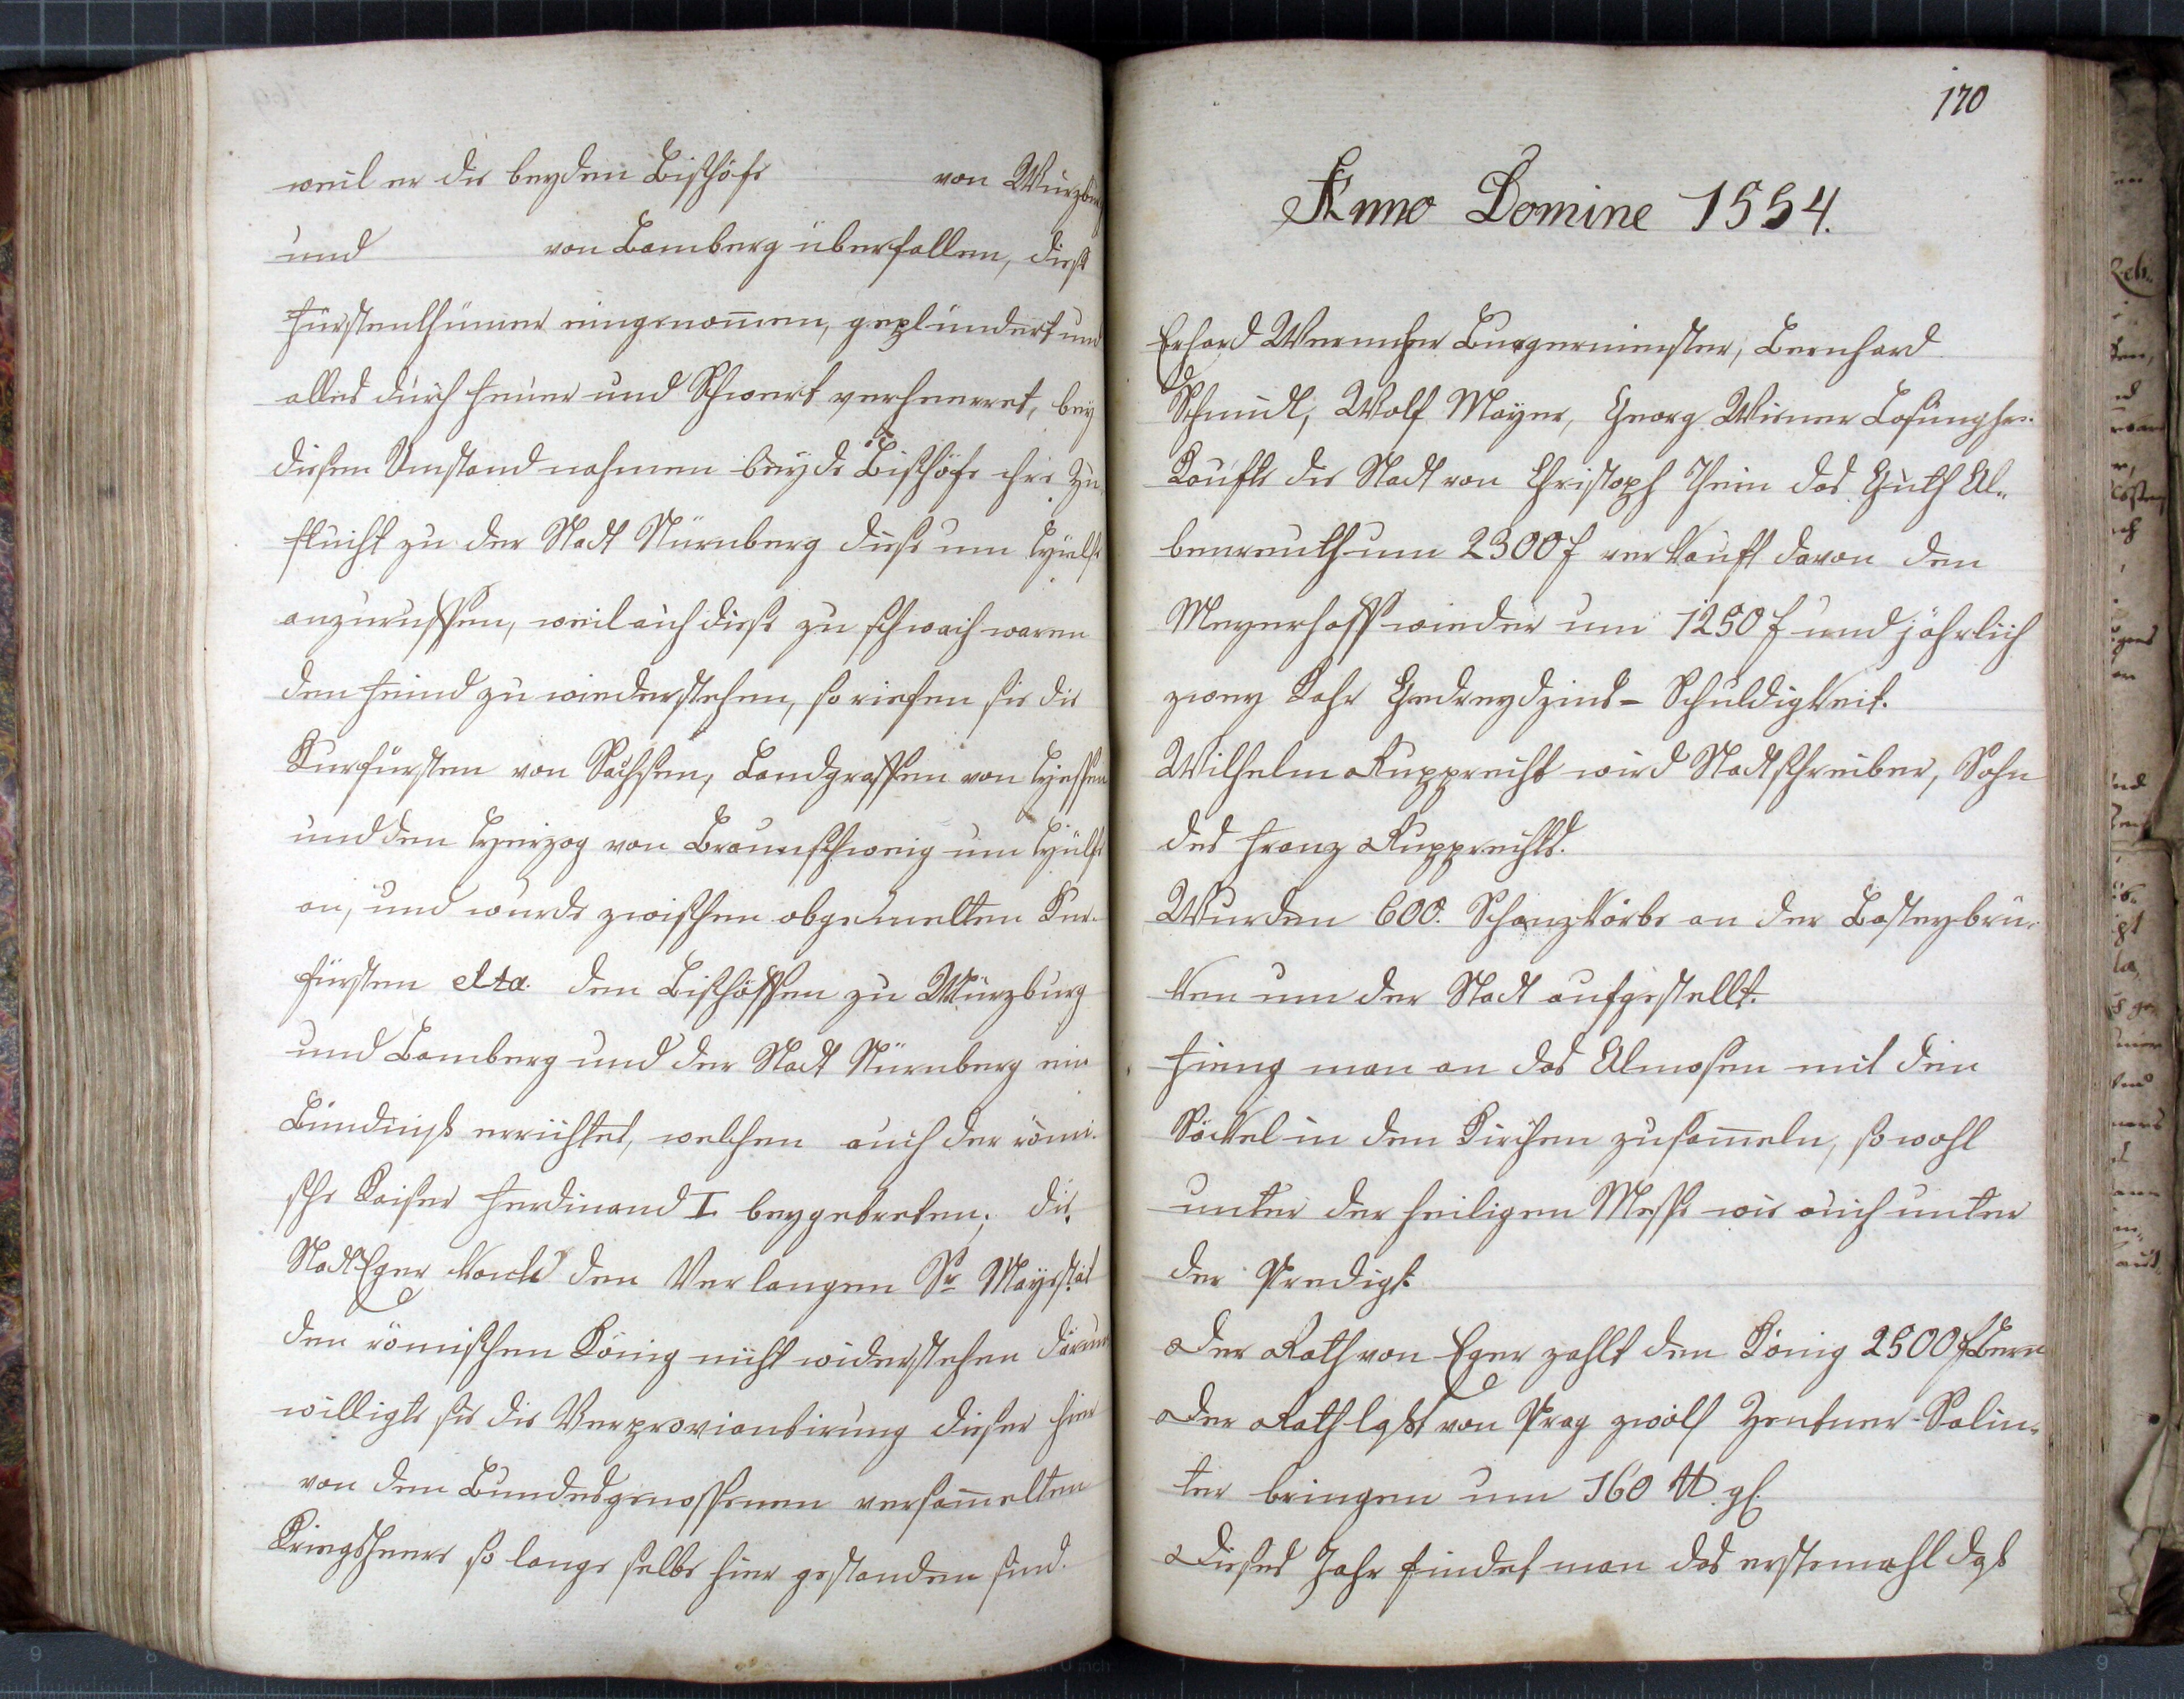 weil er die beyden Bischöfe von Würzburg
und von Bamberg überfallen, diese
Fürstenthümer eingenommen, geplündert und
alles durch Feuer und Schwert verheerret, bey
diesen Umstand nahmen beyde Bischöfe ihre Zu¬
flucht zu der Stadt Nürnberg diese um Hülfe
anzuruffen, weil auch diese zu schwach waren
den Feind zu wiederstehen, so riefen sie die
Kurfürsten von Sachsen, Landgraffen von Hessen
und den Herzog von Braunschweig um Hülfe
an, und wurde zwischen obgemelten Kur¬
fürsten etta. den Bischöffen zu Würzburg
und Bamberg und der Stadt Nürnberg ein
Bündniß errichtet, welchen auch der römi¬
sche Kaiser Ferdinand I beygetreten; die
Stadt Eger konte den Verlangen Sr Mayestät
den römischen König nicht widerstehen darum
willigte sie die Verproviantirung dieser hier
von den Bundesgenossenen versammelten
Kriegsheere so lange selbe hier gestanden sind.
170
Anno Domine 1554.
Erhard Wernher Burgermeister, Bernhard
Schmidl, Wolf Mayer, Georg Wiener Losungher.
Kaufte die Stadt von Christoph Thein das Guth Al¬
benreuth um 2300 f verkauft davon den
Meyerhoff wieder um 1250 f und jährlich
zwey Kahr Gedreydzins-Schuldigkeit.
Wilhelm Rupprecht wird Stadtschreiber, Sohn
des Franz Rupprechts.
Wurden 600. Schanzkörbe an der Basteybrü¬
ken um der Stadt aufgestellt.
Fieng man an das Almosen mit den
Säckel in den Kirchen zusammeln, sowohl
unter der heiligen Messe wie auch unter
der Predigt.
Der Rath von Eger zahlt den König 2500 f
Der Rath lässt von Prag zwölf Zentner Salin¬
ter bringen um 160 ℔ gl.
Dieses Jahr findet man das erstemahl dass